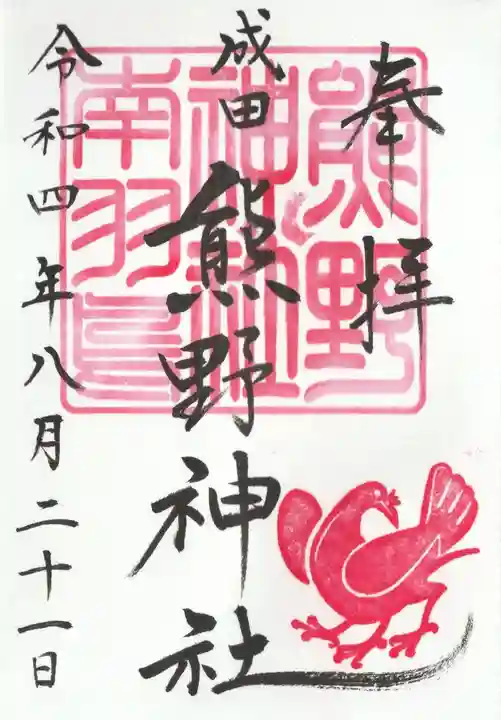 奉拝
成田
熊野神社
令和四年八月二十一日
熊野
神社
南羽